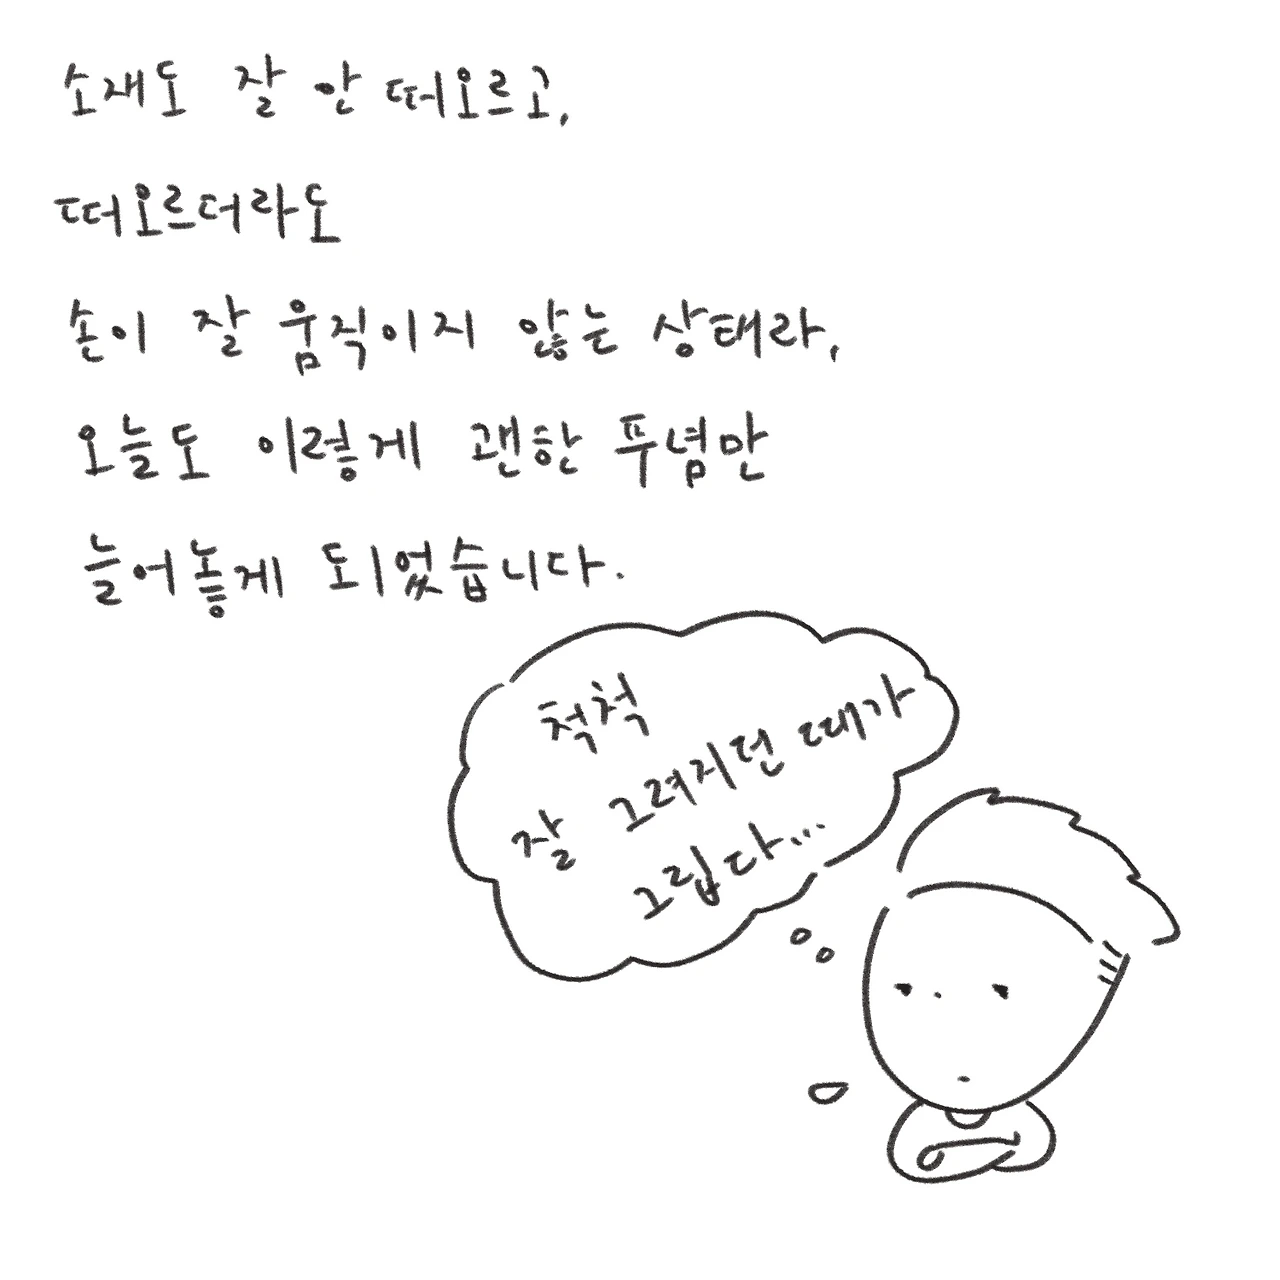 소재도 잘 안 떠오르고,
떠오르더라도
손이 잘 움직이지 않는 상태라,
오늘도 이렇게 괜한 푸념만
늘어놓게 되었습니다.
척척
잘 그려지던 때가
그립다...